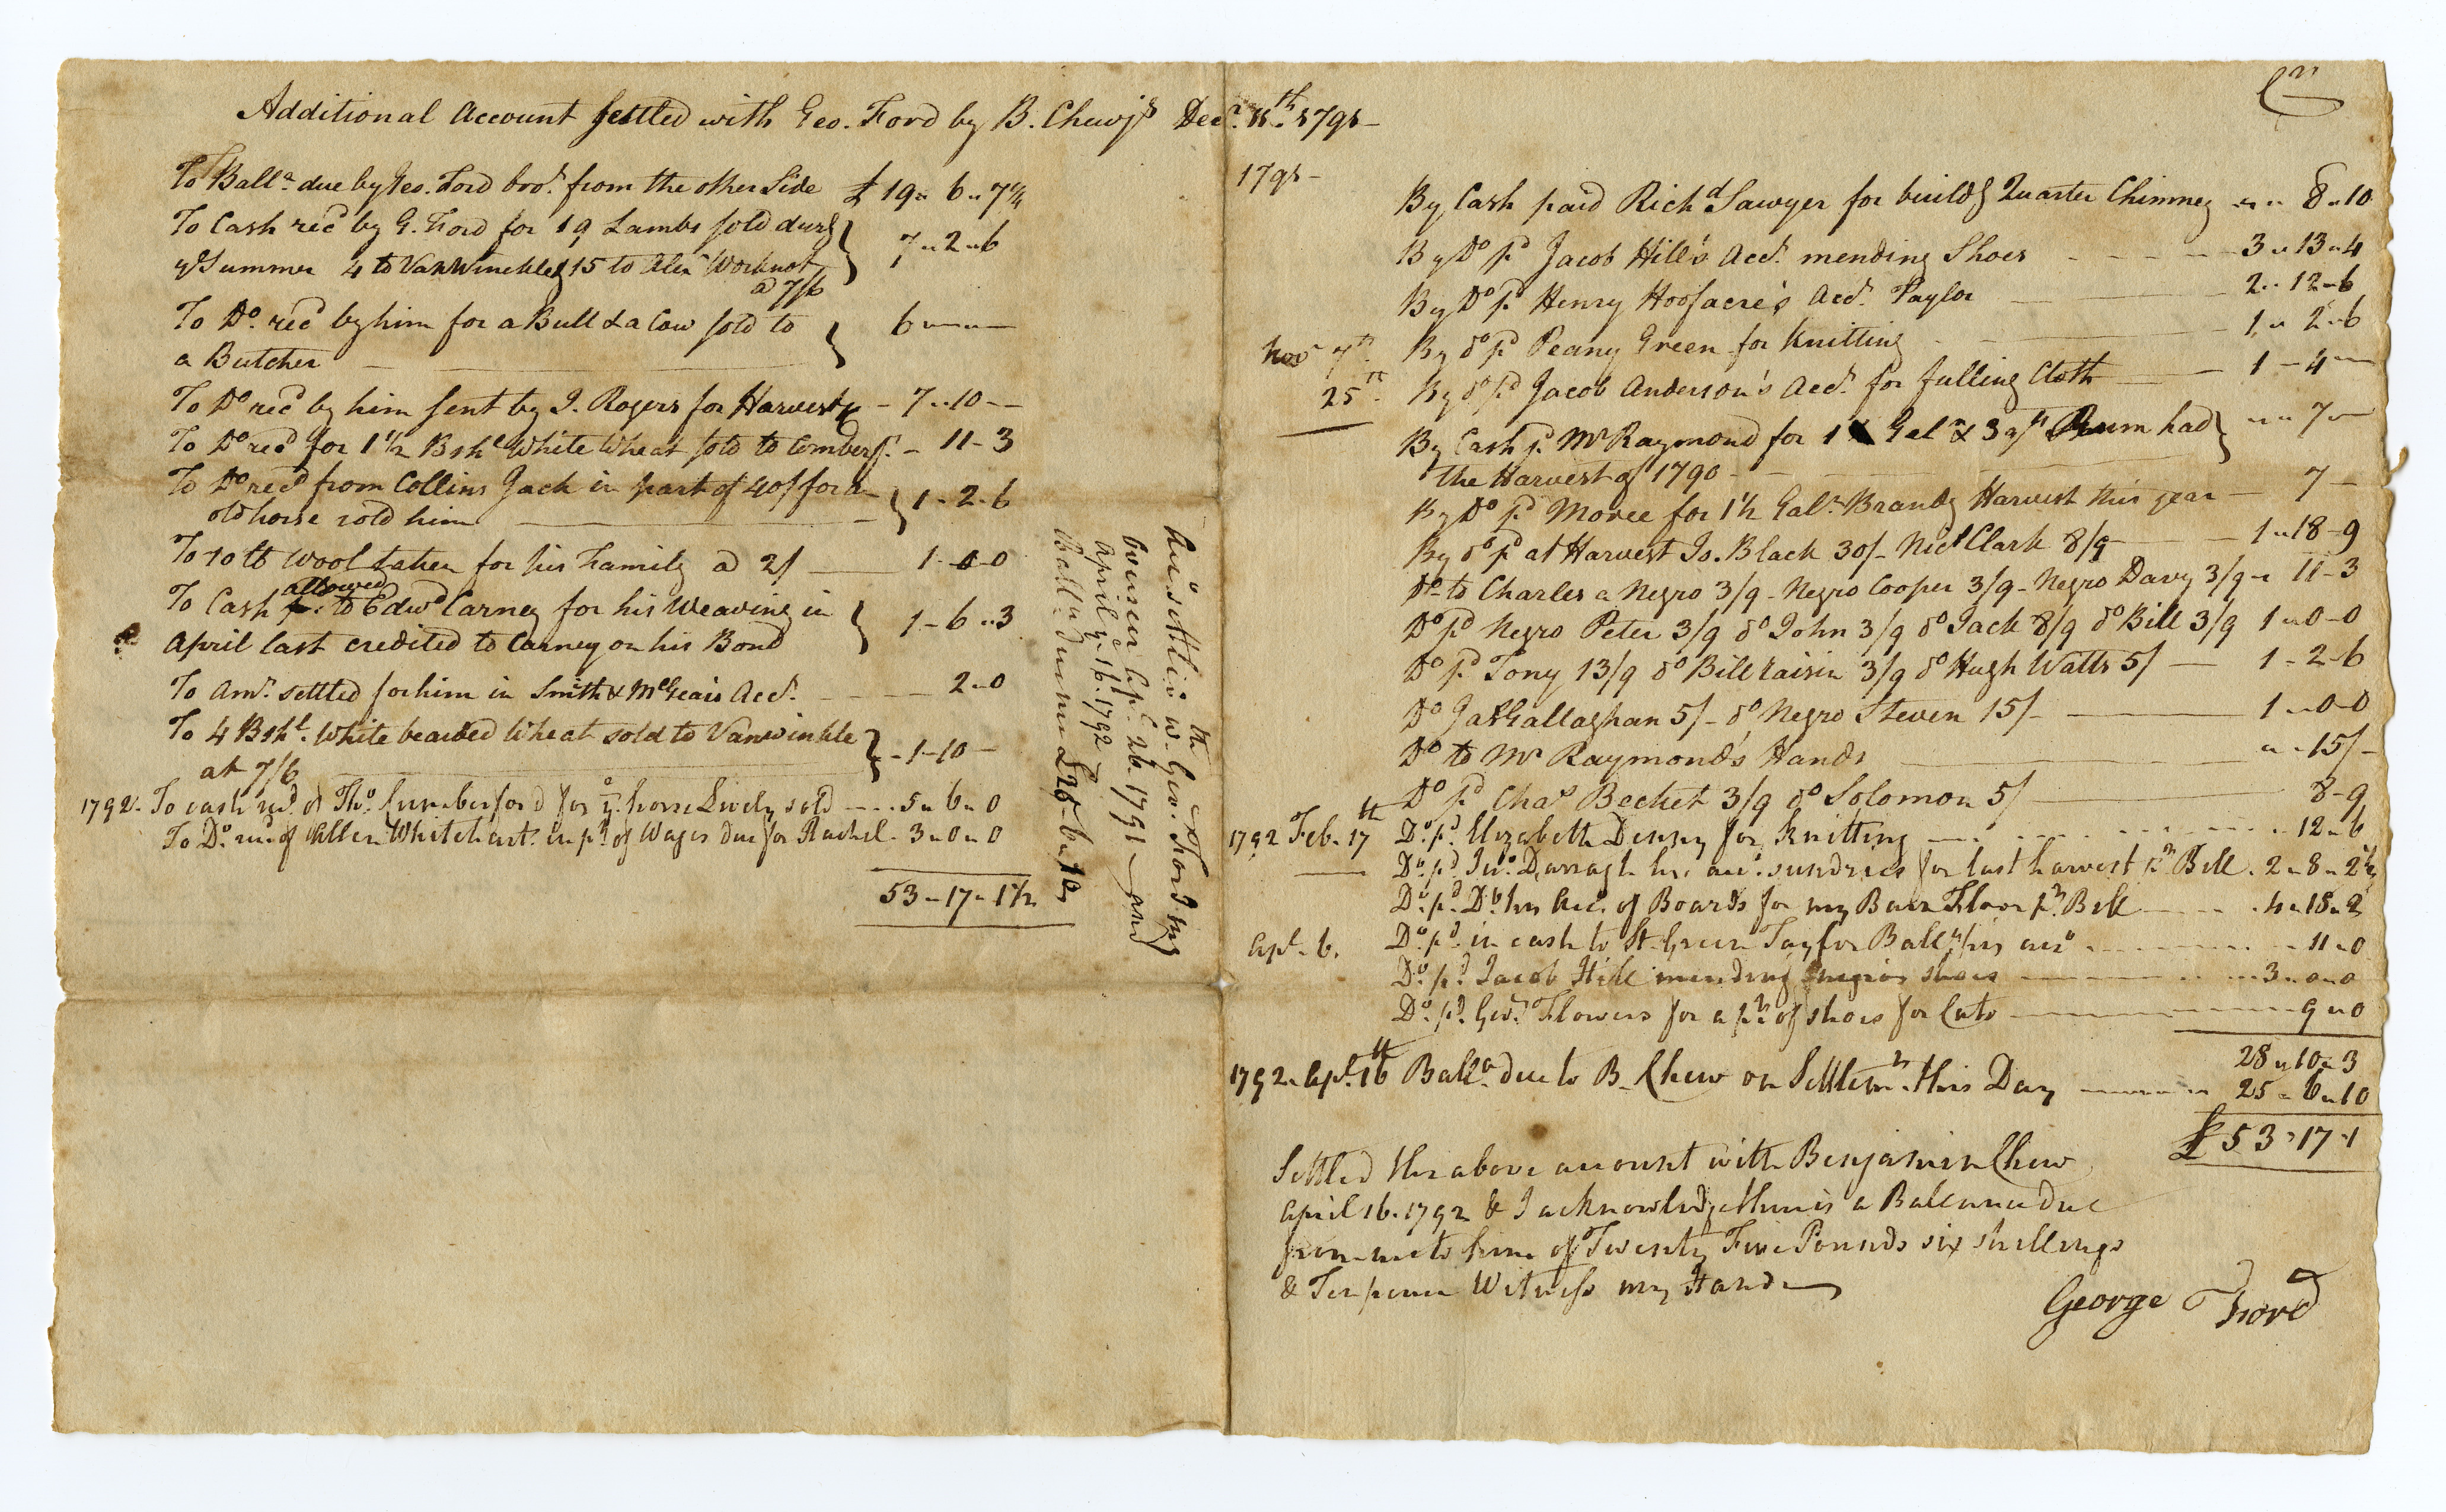 Additional Account settled with Geo. Ford by B. Chew jr Decr. 11th 1791 –
To Balla. due by Geo. Ford brot. from the other Side £ 19 " 6 " 7 1/4
To Cash recd by G. Ford for 19 Lambs sold durg
ye Summer 4 to VanWinckle & 15 to Alexr
a 7/6
7 " 2 " 6
To Do. recd by him for a Bull & a Cow sold to
a Butcher
6 " – " –
To Do recd by him sent by J. Rogers for Harvest – 7 " 10 – –
To Do recd for 1 1/2 Bshl White Wheat sold to – 11 – 3
To Do recd from Collins Jack in part of 40/ for an
old horse sold him
1 – 2 – 6
To 10 lb Wool taken for his Family a 2/ 1 – 0 – 0
allowed
To Cash to Edwd Carney for his Weaving in
April last credited to Carney on his Bond
1 – 6 " 3
To Amt. settled for him in Smith & McGears Acct. 2 " 0
To 4 Bshl. White bearded Wheat sold to Vanwinkle
at 7/6
– 1 – 10 –
1792. To cash recd. of Tho. Cumberford for ye. horse Lively sold 5 " 6 " 0
To Do. recd of Allen Whitehart in pt. of Wages due for Rachel 3 " 0 " 0
53 – 17 " 1 1/2
this settlit. w. Geo. Ford Jung
between Apl. 26th. 1791 – and
April ye. 16. 1792
Balla. due me £25 – 6 " 10
Cr
1791 –
By Cash paid Richd Sawyer for buildg Quarter Chimney " " 8 " 10
By Do pd Jacob Hill's Acct. mending Shoes 3 " 13 " 4
By Do pd Henry Hoofacre's Acct. Taylor 2 " 12 – 6
Novr 7th. By do pd Peany Green for Knitting 1 " 2 " 6
25th. By do pd Jacob Anderson's Acct. for fulling Cloth 1 – 4 –
By Cash pd. Mr Raymond for 1 Galn & 3 qts Rum had
the Harvest of 1790 –
" " 7 –
By Do pd Moree for 1 1/2 Galn. Brandy Harvest this year – 7 –
By do pd at Harvest Jo. Black 30/– Nicl Clark 8/9 1 " 18 – 9
Do to Charles a Negro 3/9 – Negro Cooper 3/9 – Negro Davy 3/9 – 11 – 3
Do pd Negro Peter 3/9 do John 3/9 do Jack 8/9 do Bill 3/9 1 " 0 – 0
Do pd Tony 13/9 do Bill Caisin 3/9 do Hugh Watts 5/ 1 – 2 – 6
Do Jas Gallaghan 5/– do Negro Steven 15/– 1 " 0 – 0
Do to Mr Raymond's Hands " " 15/–
Do pd Chas Becket 3/9 do Solomon 5/ 8 – 9
1792 Feb. 17th Do. pd. Elizabeth Denny for Knitting 12 " 6
Do. pd. Jno. Darragh his acct. sundries for last harvest pr Bill . 2 " 8 " 2 1/2
Do. pd. Do. his Acct. of Boards for my Barn Floor pr. Bill 4 " 18 " 2
Apl. 6. Do. pd. in cash to St. Green Taylor Balla. his acct 11 " 0
Do. pd. Jacob Hill mending negroes shoes 3 " 0 " 0
Do. pd. Geo. Flowers for a pr. of shoes for Cato 9 " 0
28 " 10 " 3
1792. Apl. 16th Balla. due to B. Chew on Settlemt. this Day 25 " 6 " 10
£ 53 " 17 " 1
Settled the above account with Benjamin Chew
April 16. 1792 & I acknowledge there is a Ballance due
from me to him of Twenty Five Pounds six shillings
& Ten pence Witness my Hand
George Ford